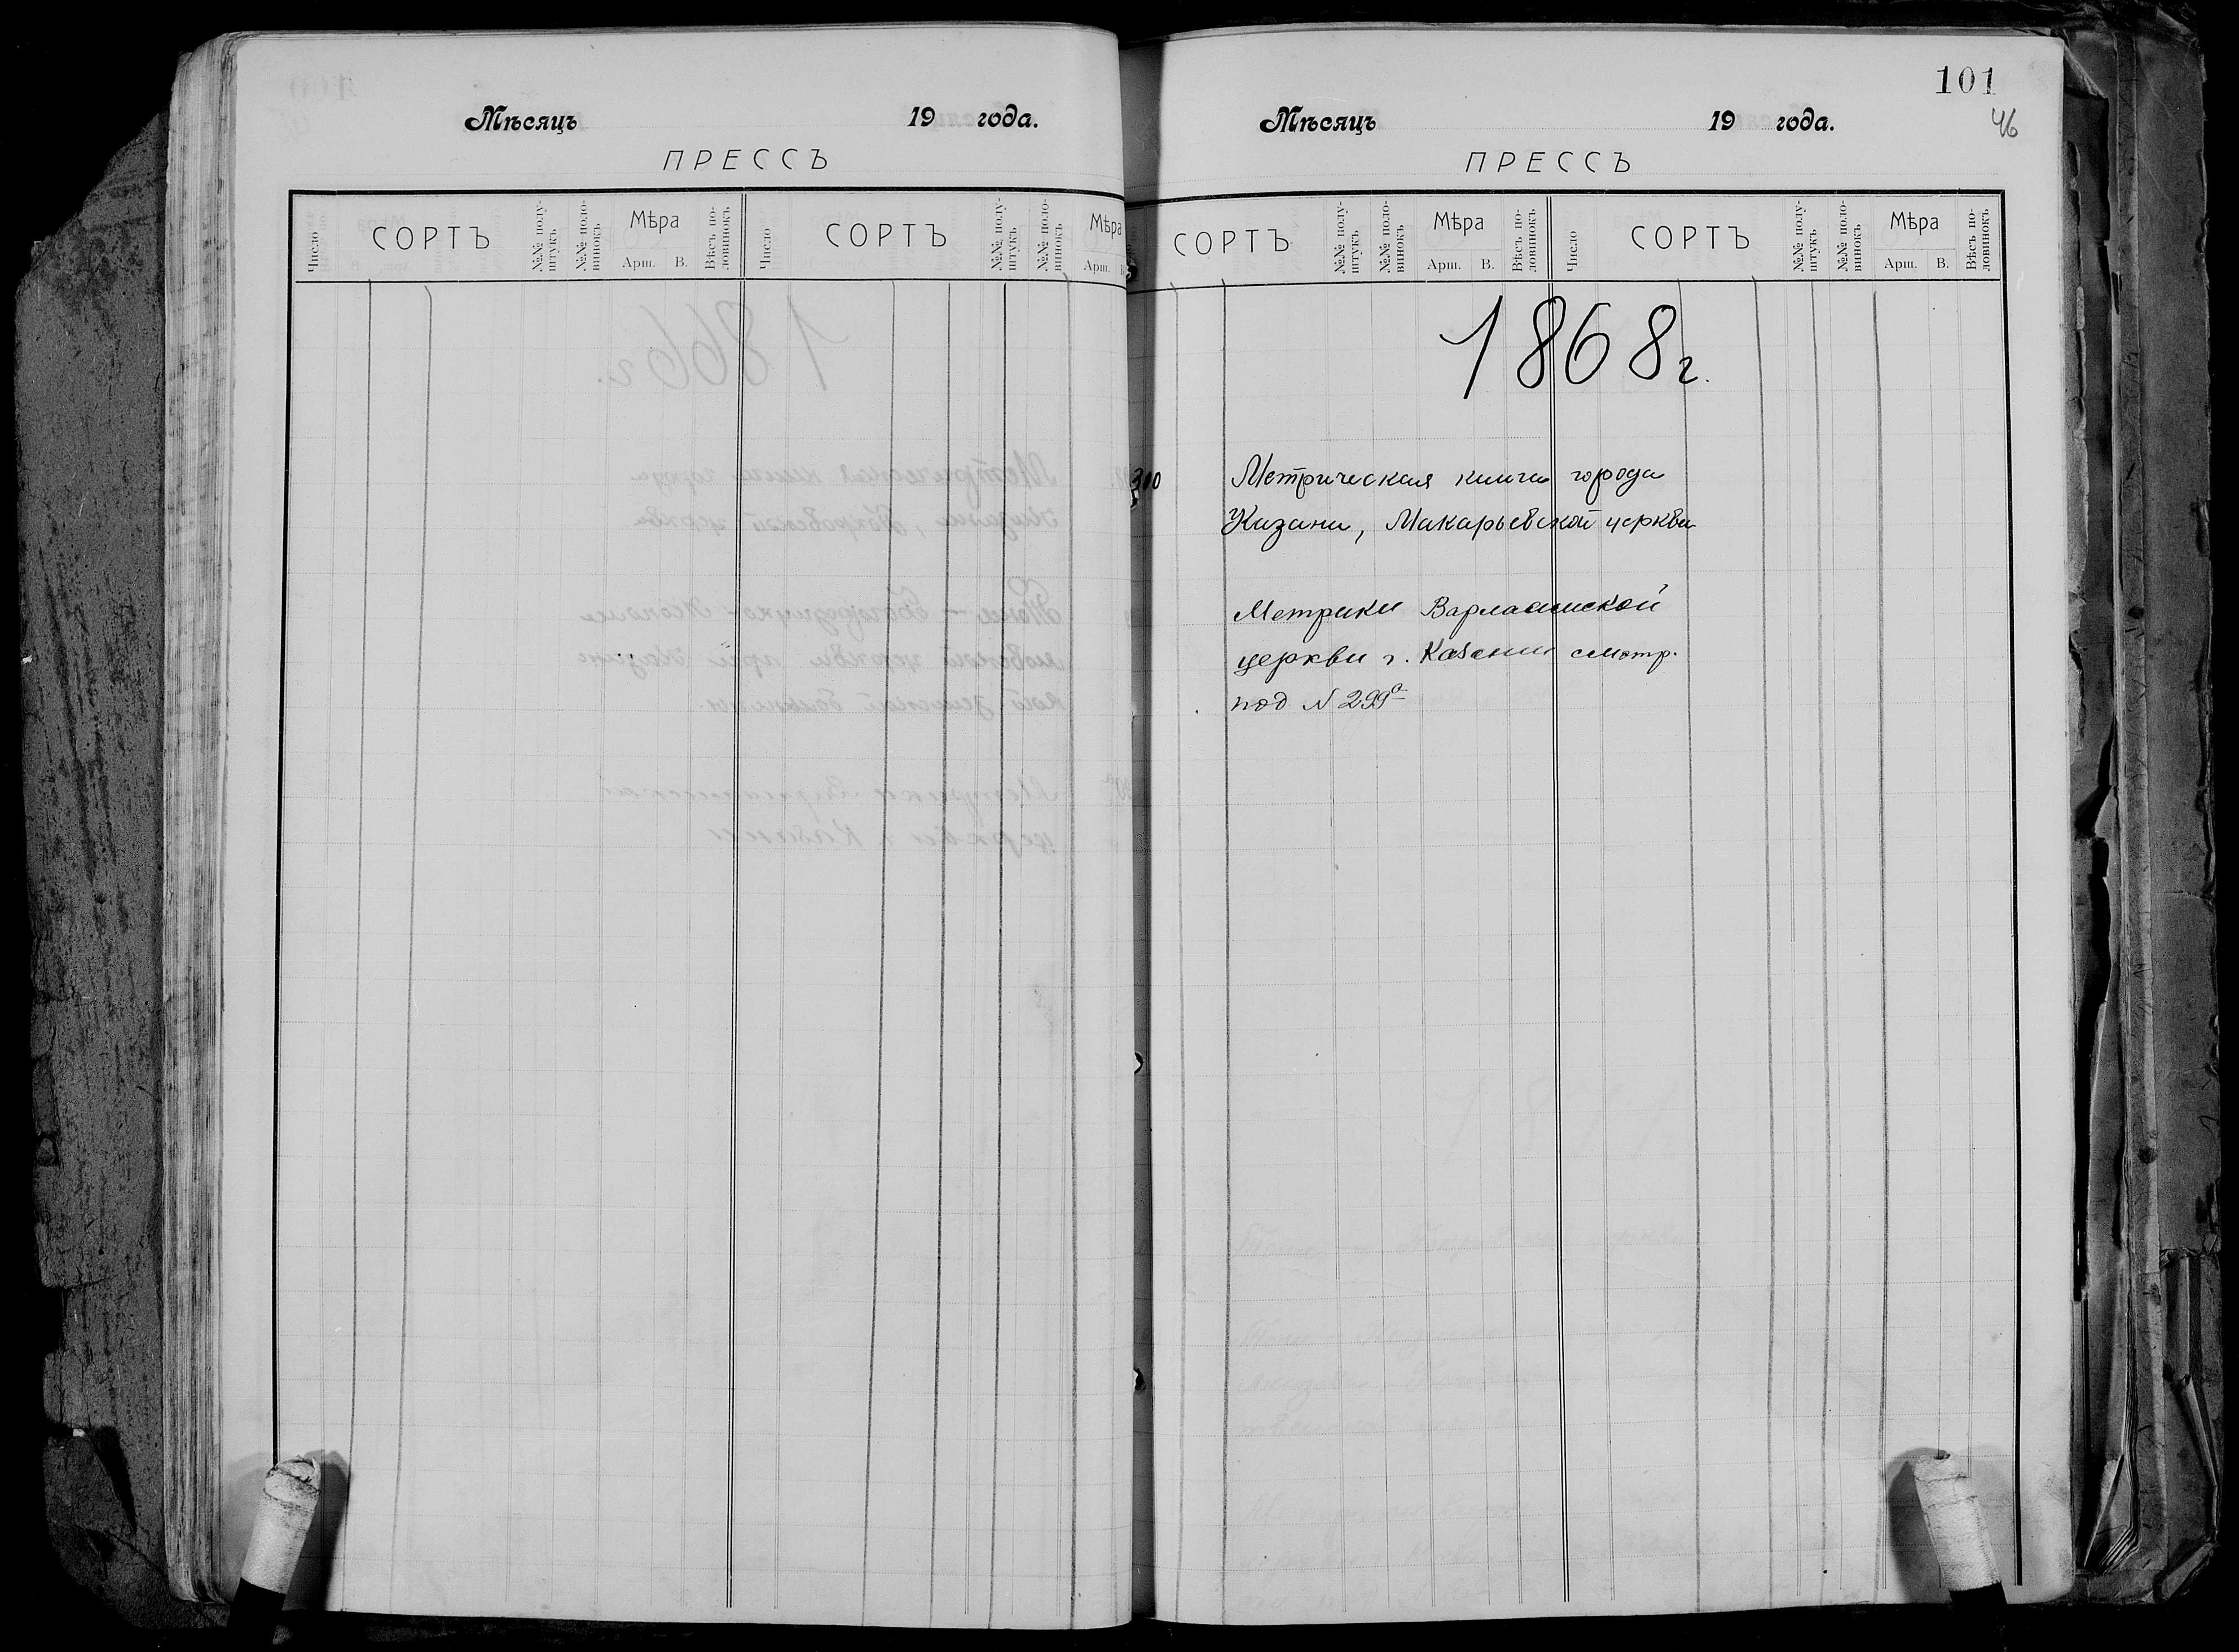 Мѣсяцъ 19 года.
ПРЕССЪ
Число СОРТЪ №№ полу-штукъ №№ поло-винокъ Мѣра Арш. В. Вѣсъ по-ловинокъ Число СОРТЪ №№ полу-штукъ №№ поло-винокъ Мѣра Арш.
101
46
Мѣсяцъ 19 года.
ПРЕССЪ
СОРТЪ №№ полу-штукъ №№ поло-винокъ Мѣра Арш. В. Вѣсъ по-ловинокъ Число СОРТЪ №№ полу-штукъ №№ поло-винокъ Мѣра Арш. В. Вѣсъ по-ловинокъ
1868 г.
300 Метрическая книга города
Казани, Макарьевской церкви
Метрики Варлаамской
церкви г. Казани смотр.
под N 299а